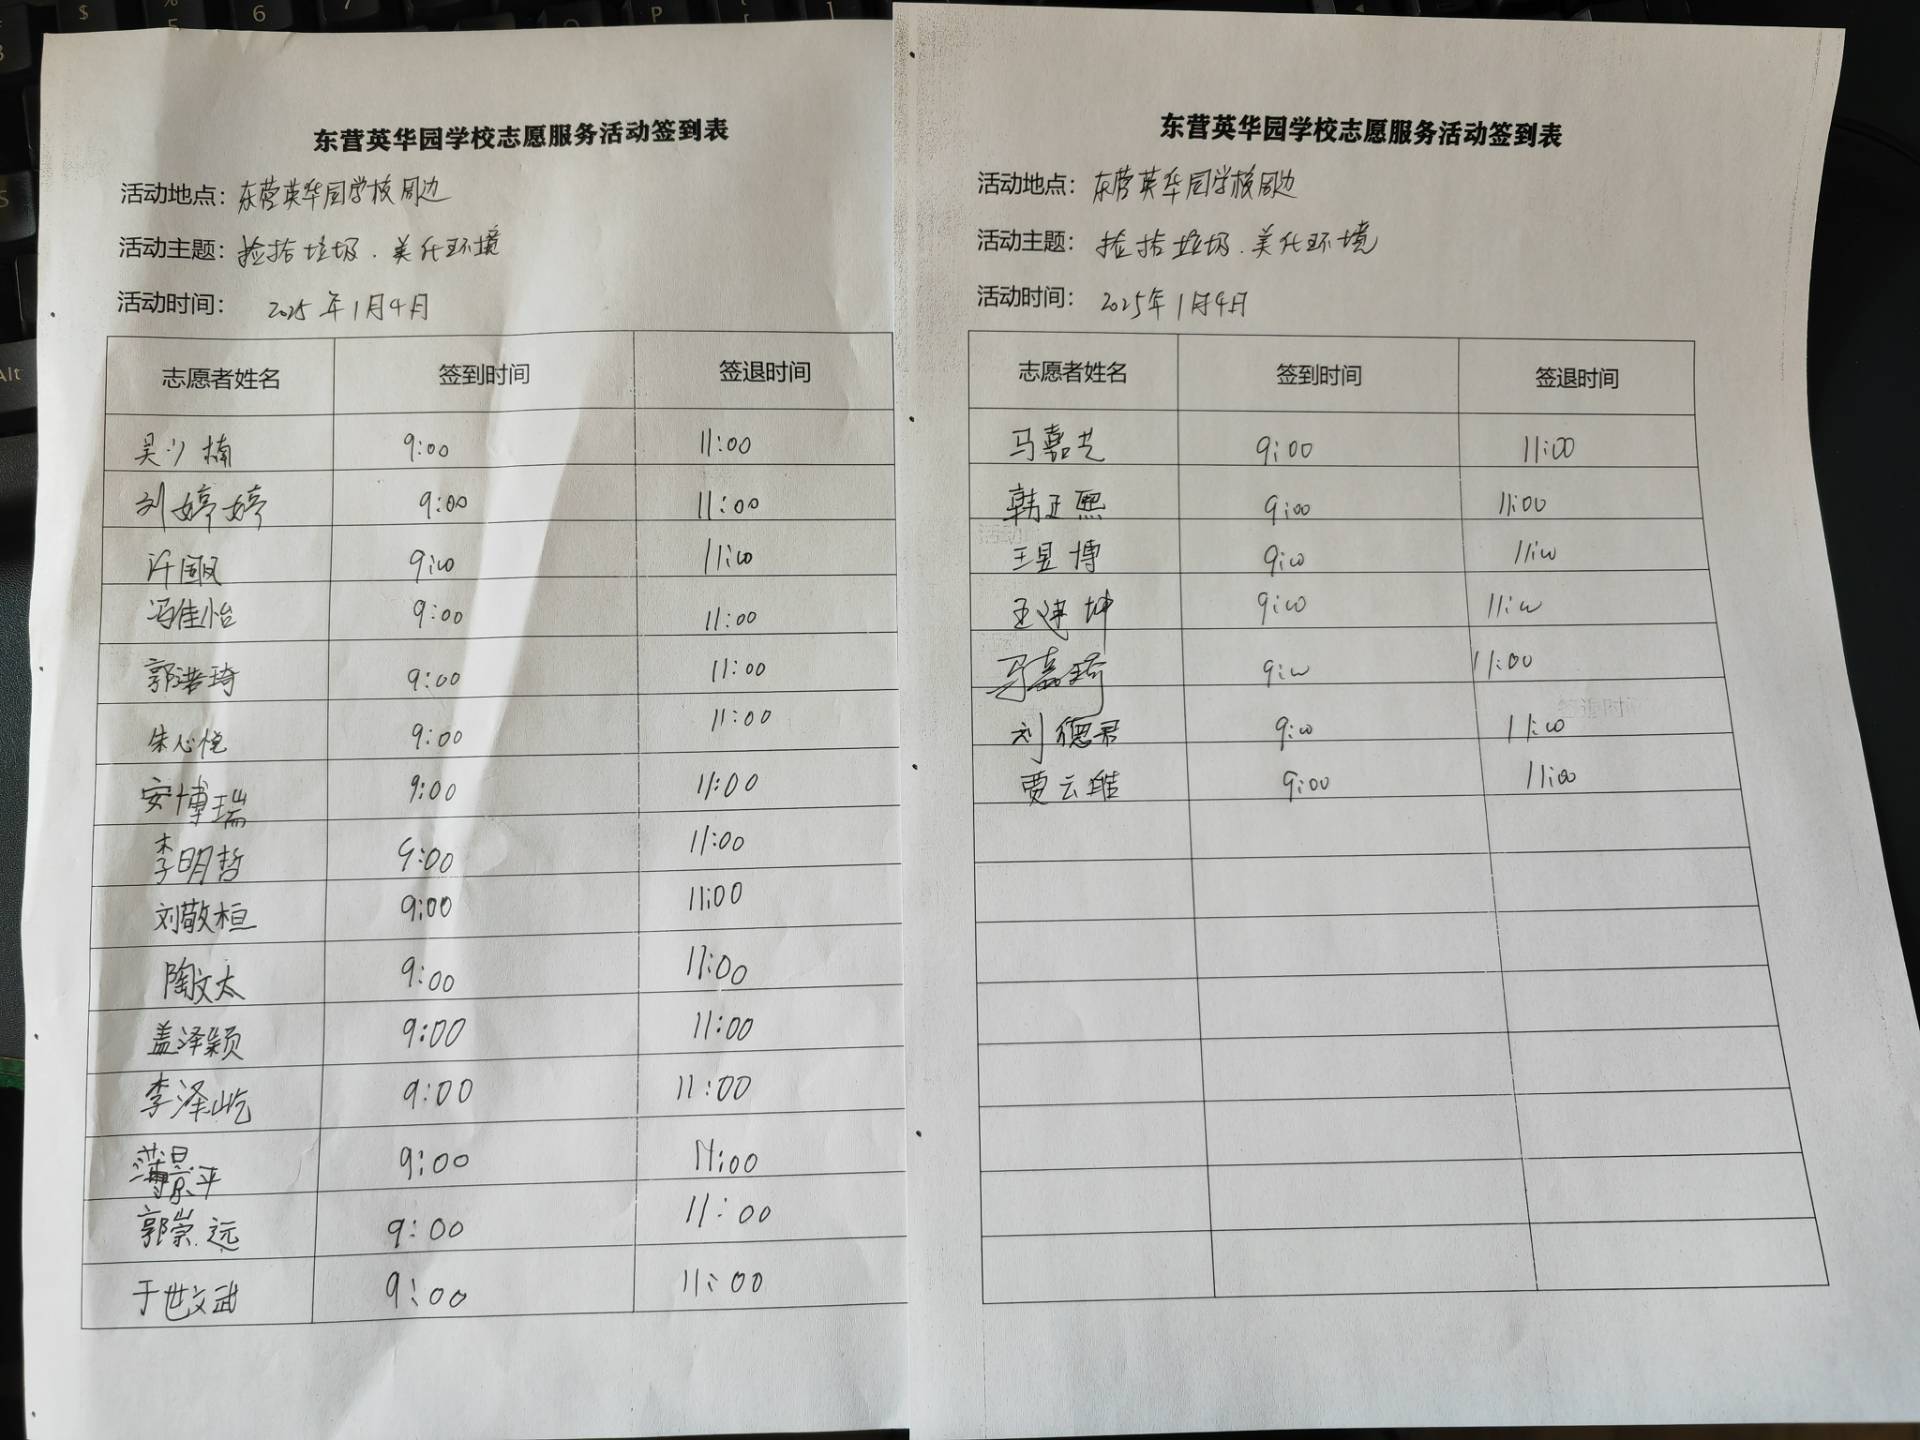 东营英华园学校志愿服务活动签到表
活动地点：东营英华园学校周边
活动主题：捡拾垃圾.美化环境
活动时间：2025年1月4日
志愿者姓名 签到时间 签退时间
吴少楠 9:00 11:00
刘婷婷 9:00 11:00
许国凤 9:00 11:00
冯佳怡 9:00 11:00
郭浩琦 9:00 11:00
朱心悦 9:00 11:00
安博瑞 9:00 11:00
李明哲 9:00 11:00
刘敬桓 9:00 11:00
陶文太 9:00 11:00
盖泽颖 9:00 11:00
李泽屹 9:00 11:00
薄景平 9:00 11:00
郭崇远 9:00 11:00
于世文武 9:00 11:00
东营英华园学校志愿服务活动签到表
活动地点：东营英华园学校周边
活动主题：捡拾垃圾.美化环境
活动时间：2025年1月4日
志愿者姓名 签到时间 签退时间
马嘉艺 9:00 11:00
韩正熙 9:00 11:00
王昱博 9:00 11:00
王建坤 9:00 11:00
马嘉琦 9:00 11:00
刘德君 9:00 11:00
贾云雅 9:00 11:00